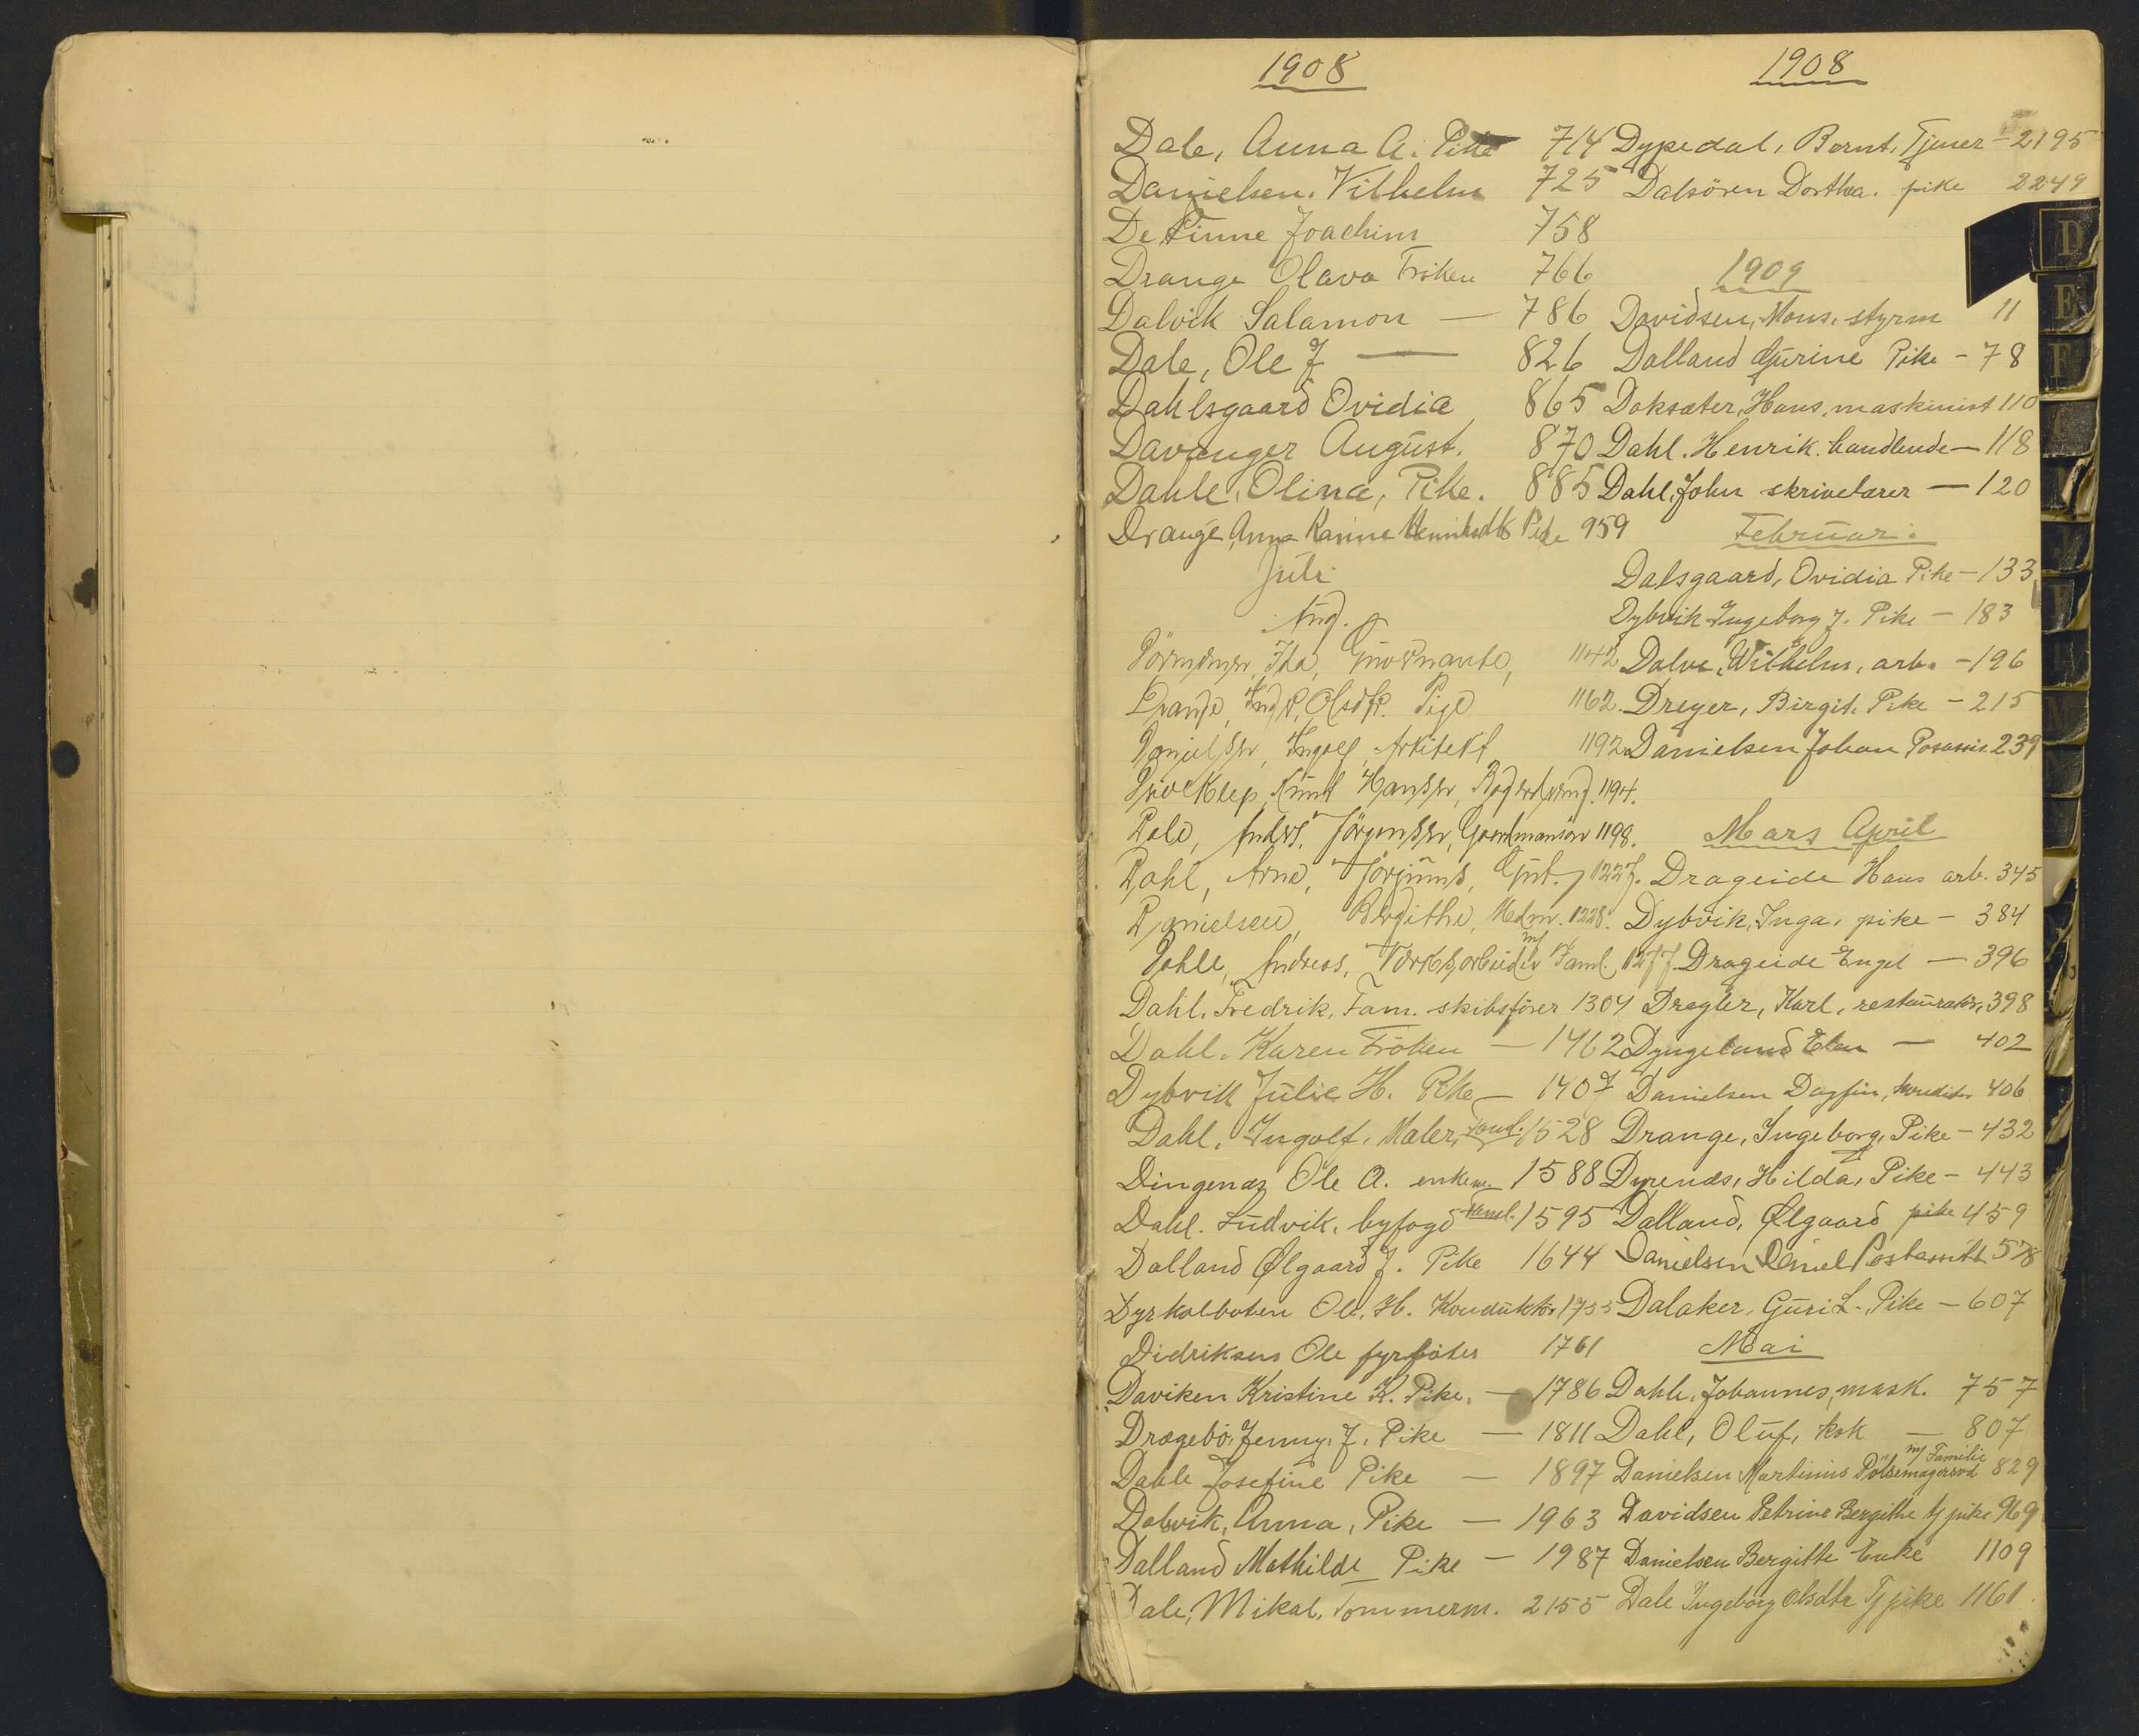 1908
Dale, Anna A. Pike 714
Danielsen. Vilhelm 725
De Finne Joachim 758
Drange Olava Fröken 766
Dalvik Salamon — 786
Dale, Ole J — 826
Dahlsgaard Ovidia 865
Davanger August. 870
Dahle, Olina, Pike. 885
Drange, Anna Karine Henriksdtr Pike 959
Juli
Aug.
Ida, Guvernante, 1142
Drange, Olsdtr. Pige 1162.
Danielsen, Ingolf, Arkitekt 1192
Knut Hansen, 1194.
Dale, Anders, Jörgensen, Gaardmansön 1198.
Dahl, Arne, Gut. 1227.
Danielsen, Birgithe, Madm. 1228.
Dahle, Andreas, Verksarbeider m/ Faml. 1277
Dahl, Fredrik, Fam. skibsförer 1304
Dahl. Karen Fröken — 1462
Dybvik Julie H. Pike — 1407
Dahl. Ingolf, Maler, Faml. 1528
Dingenæs Ole A. enkem. 1588
Dahl. Ludvik. byfogd Faml. 1595
Dalland Ølgaard J. Pike 1644
Dyrkolbotn Ole. H. Konduktör 1755
Didriksen Ole fyrböter 1761
Daviken Kristine K. Pike. — 1786
Dragebö, Jenny, J. Pike — 1811
Dahle Josefine Pike — 1897
Dalsvik, Anna, Pike — 1963
Dalland Mathilde Pike — 1987
Dale, Mikal, Tommerm. 2155
1908
Dypedal, Bernt, Tjener - 2195
Dalsören Dorthea. pike 2249
1909
Davidsen, Mons, styrm 11
Dalland Gurine Pike - 78
Doksæter, Hans, maskinist 110
Dahl. Henrik. handlende — 118
Dahl, John skrivelærer — 120
Februar.
Dalsgaard, Ovidia Pike — 133
Dybvik Ingeborg J. Pike — 183
Dalve, Wilhelm, arb. - 196
Dreyer, Birgit. Pike - 215
Danielsen Johan Posassis. 239
Mars April
Drageide Hans arb. 345
Dybvik, Inga, pike - 384
Drageide Engel — 396
Dregler, Karl, restauratör, 398
Dyngeland Elen — 402
Danielsen Dagfin, konditor 406
Drange, Ingeborg, Pike - 432
Dyrenæs, Hilda, Pike - 443
Dalland, Ølgaard pike 459
Danielsen Daniel Postassistt 578
Dalaker, Guri L. Pike — 607
Mai
Dahle, Johannes, mask. 757
Dahl, Oluf, kok — 807
Danielsen Martinius Pölsemagersvd m/ Familie 829
Davidsen Petrine Bergithe tj pike 969
Danielsen Bergitte Enke 1109
Dale Ingeborg Olsdtr Tj pike 1161
D
E
F